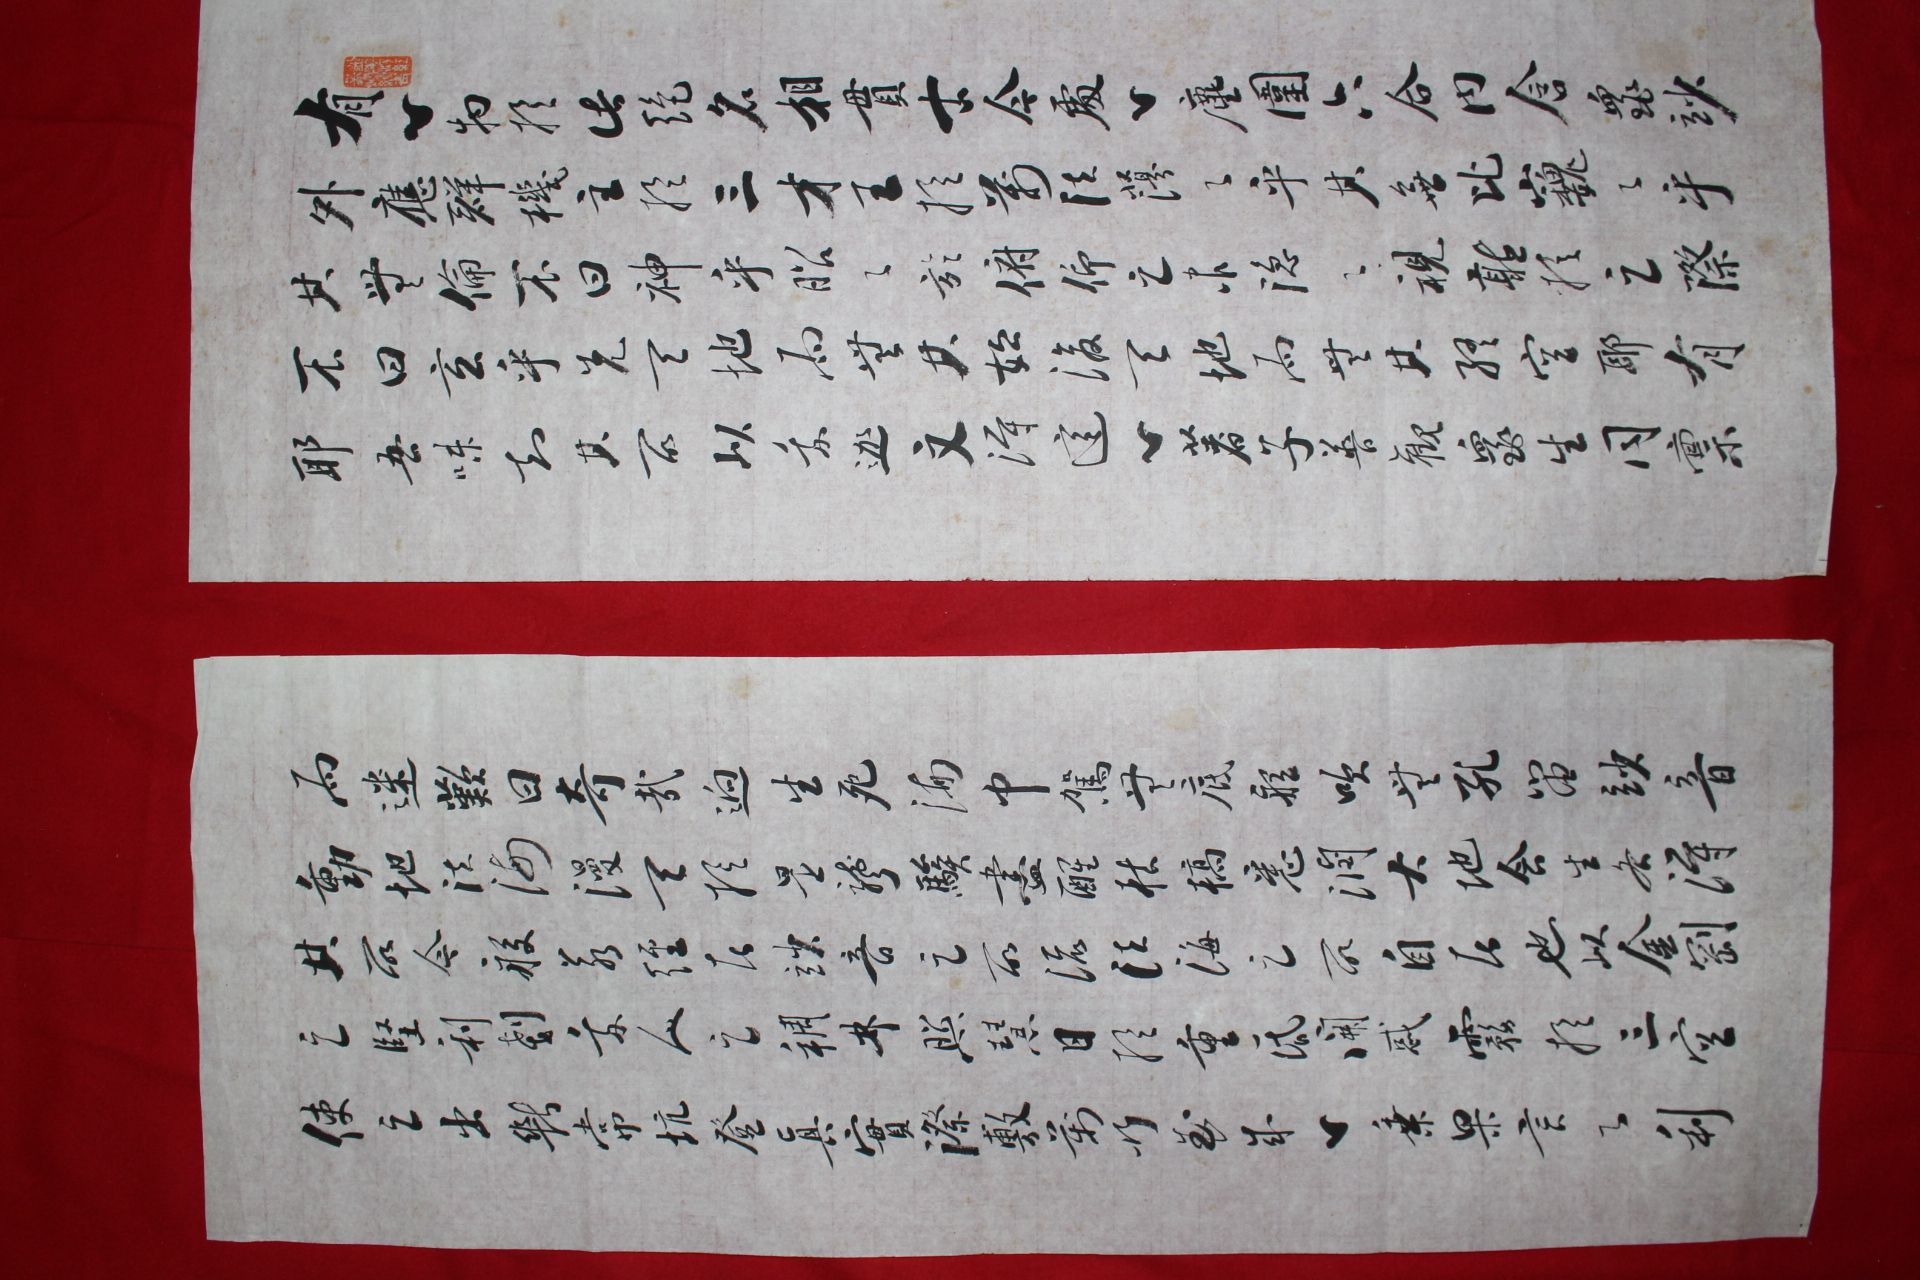 有一物於此絕名相貫古今處一塵圍六合內含衆妙
外應群機主於三才王於萬法蕩々乎其無比巍々乎
其無倫不曰神乎昭々於俯仰之間隱々視聽於之際
不曰玄乎先天地而無其始後天地而無其終空耶有
耶吾味知其所以我迦文得這一著子普觀衆生同稟
而迷歎曰奇哉逈生死海中駕無底船吹無孔笛妙音
動地法海漫天於是聾騃盡醒枯槁悉潤大地含生各得
其所今般若經者妙音之所流法海之所自者也以金剛
之堅利剗我人之稠林照慧日於重昏開惑霧於三空
使之出斷常坑登眞實際敷萬行花成一乘果言々利